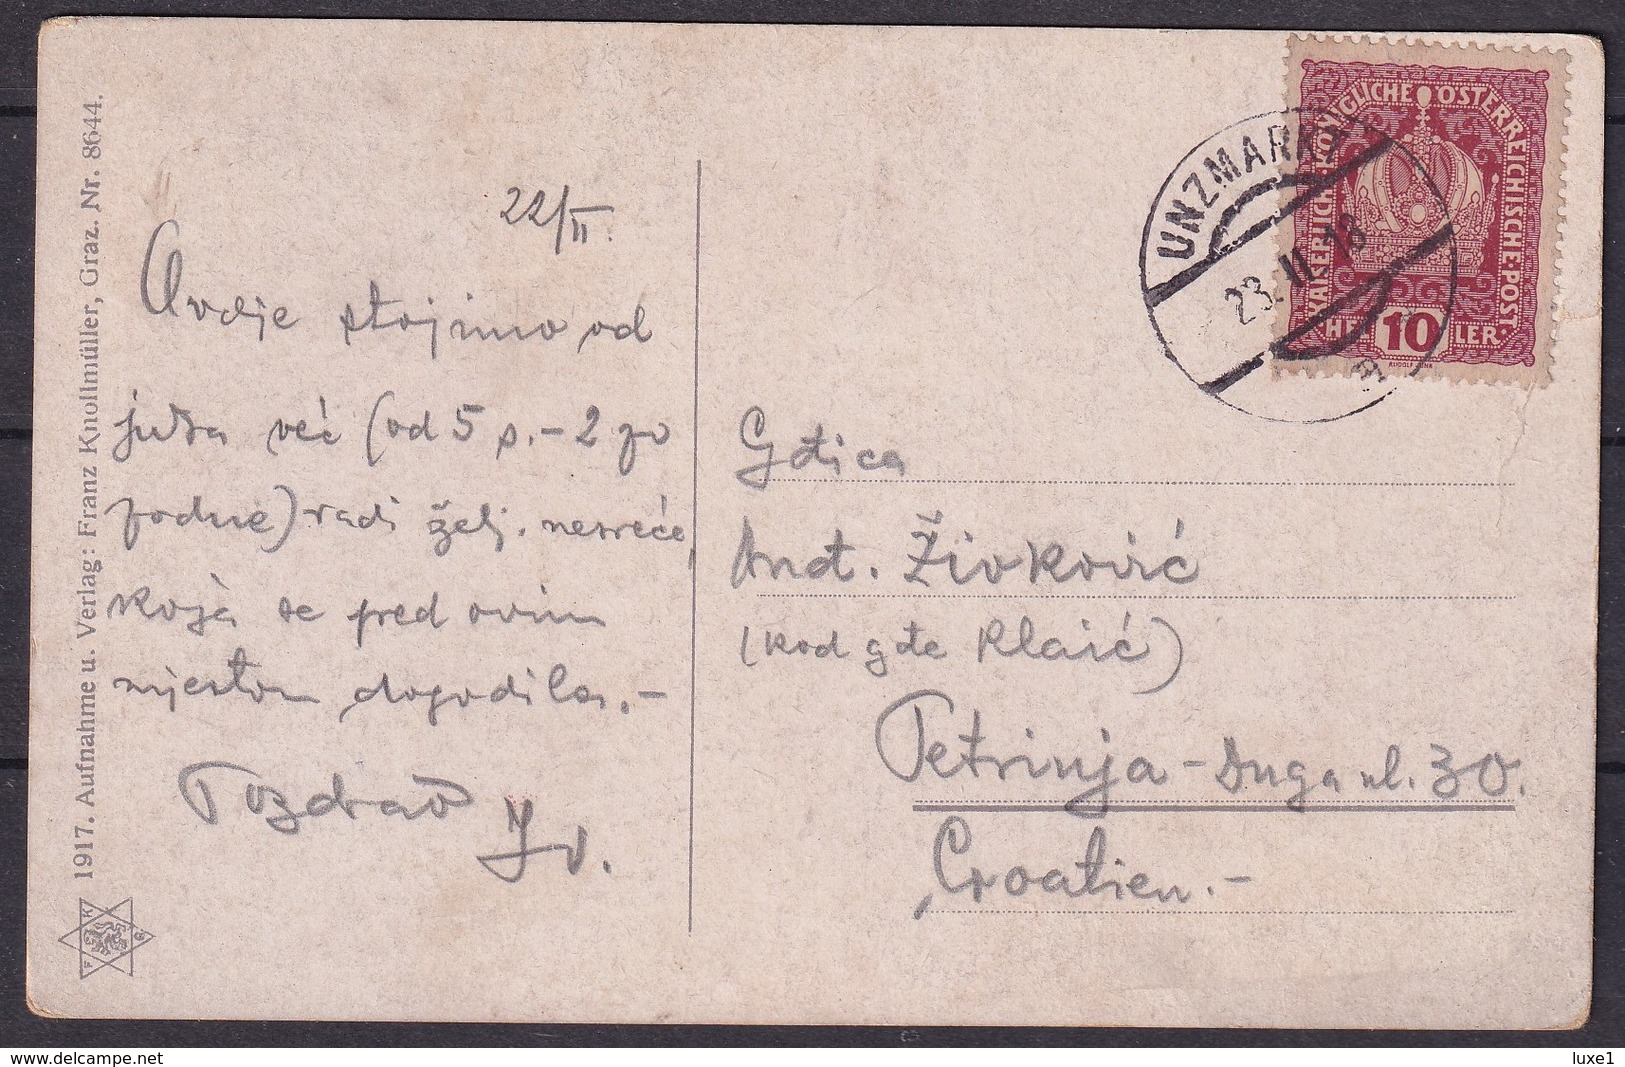 22/II.
Ovdje stojimo od
jutra već (od 5 s. – 2 po
podne) radi želj. nesreće,
koja se pred ovim
mjestom dogodila. –
Pozdrav
Iv.
1917. Aufnahme u. Verlag: Franz Knollmüller, Graz. Nr. 8644.
F K G
KAISERLICH·KÖNIGLICHE ÖSTERREICHISCHE·POST·
HELLER
10
RUDOLF JUNK
UNZMARKT
23. II. 18
a
Gđica
And. Živković
(kod gđe Klaić)
Petrinja – Duga ul. 30.
Croatien. –
www.delcampe.net
luxe1